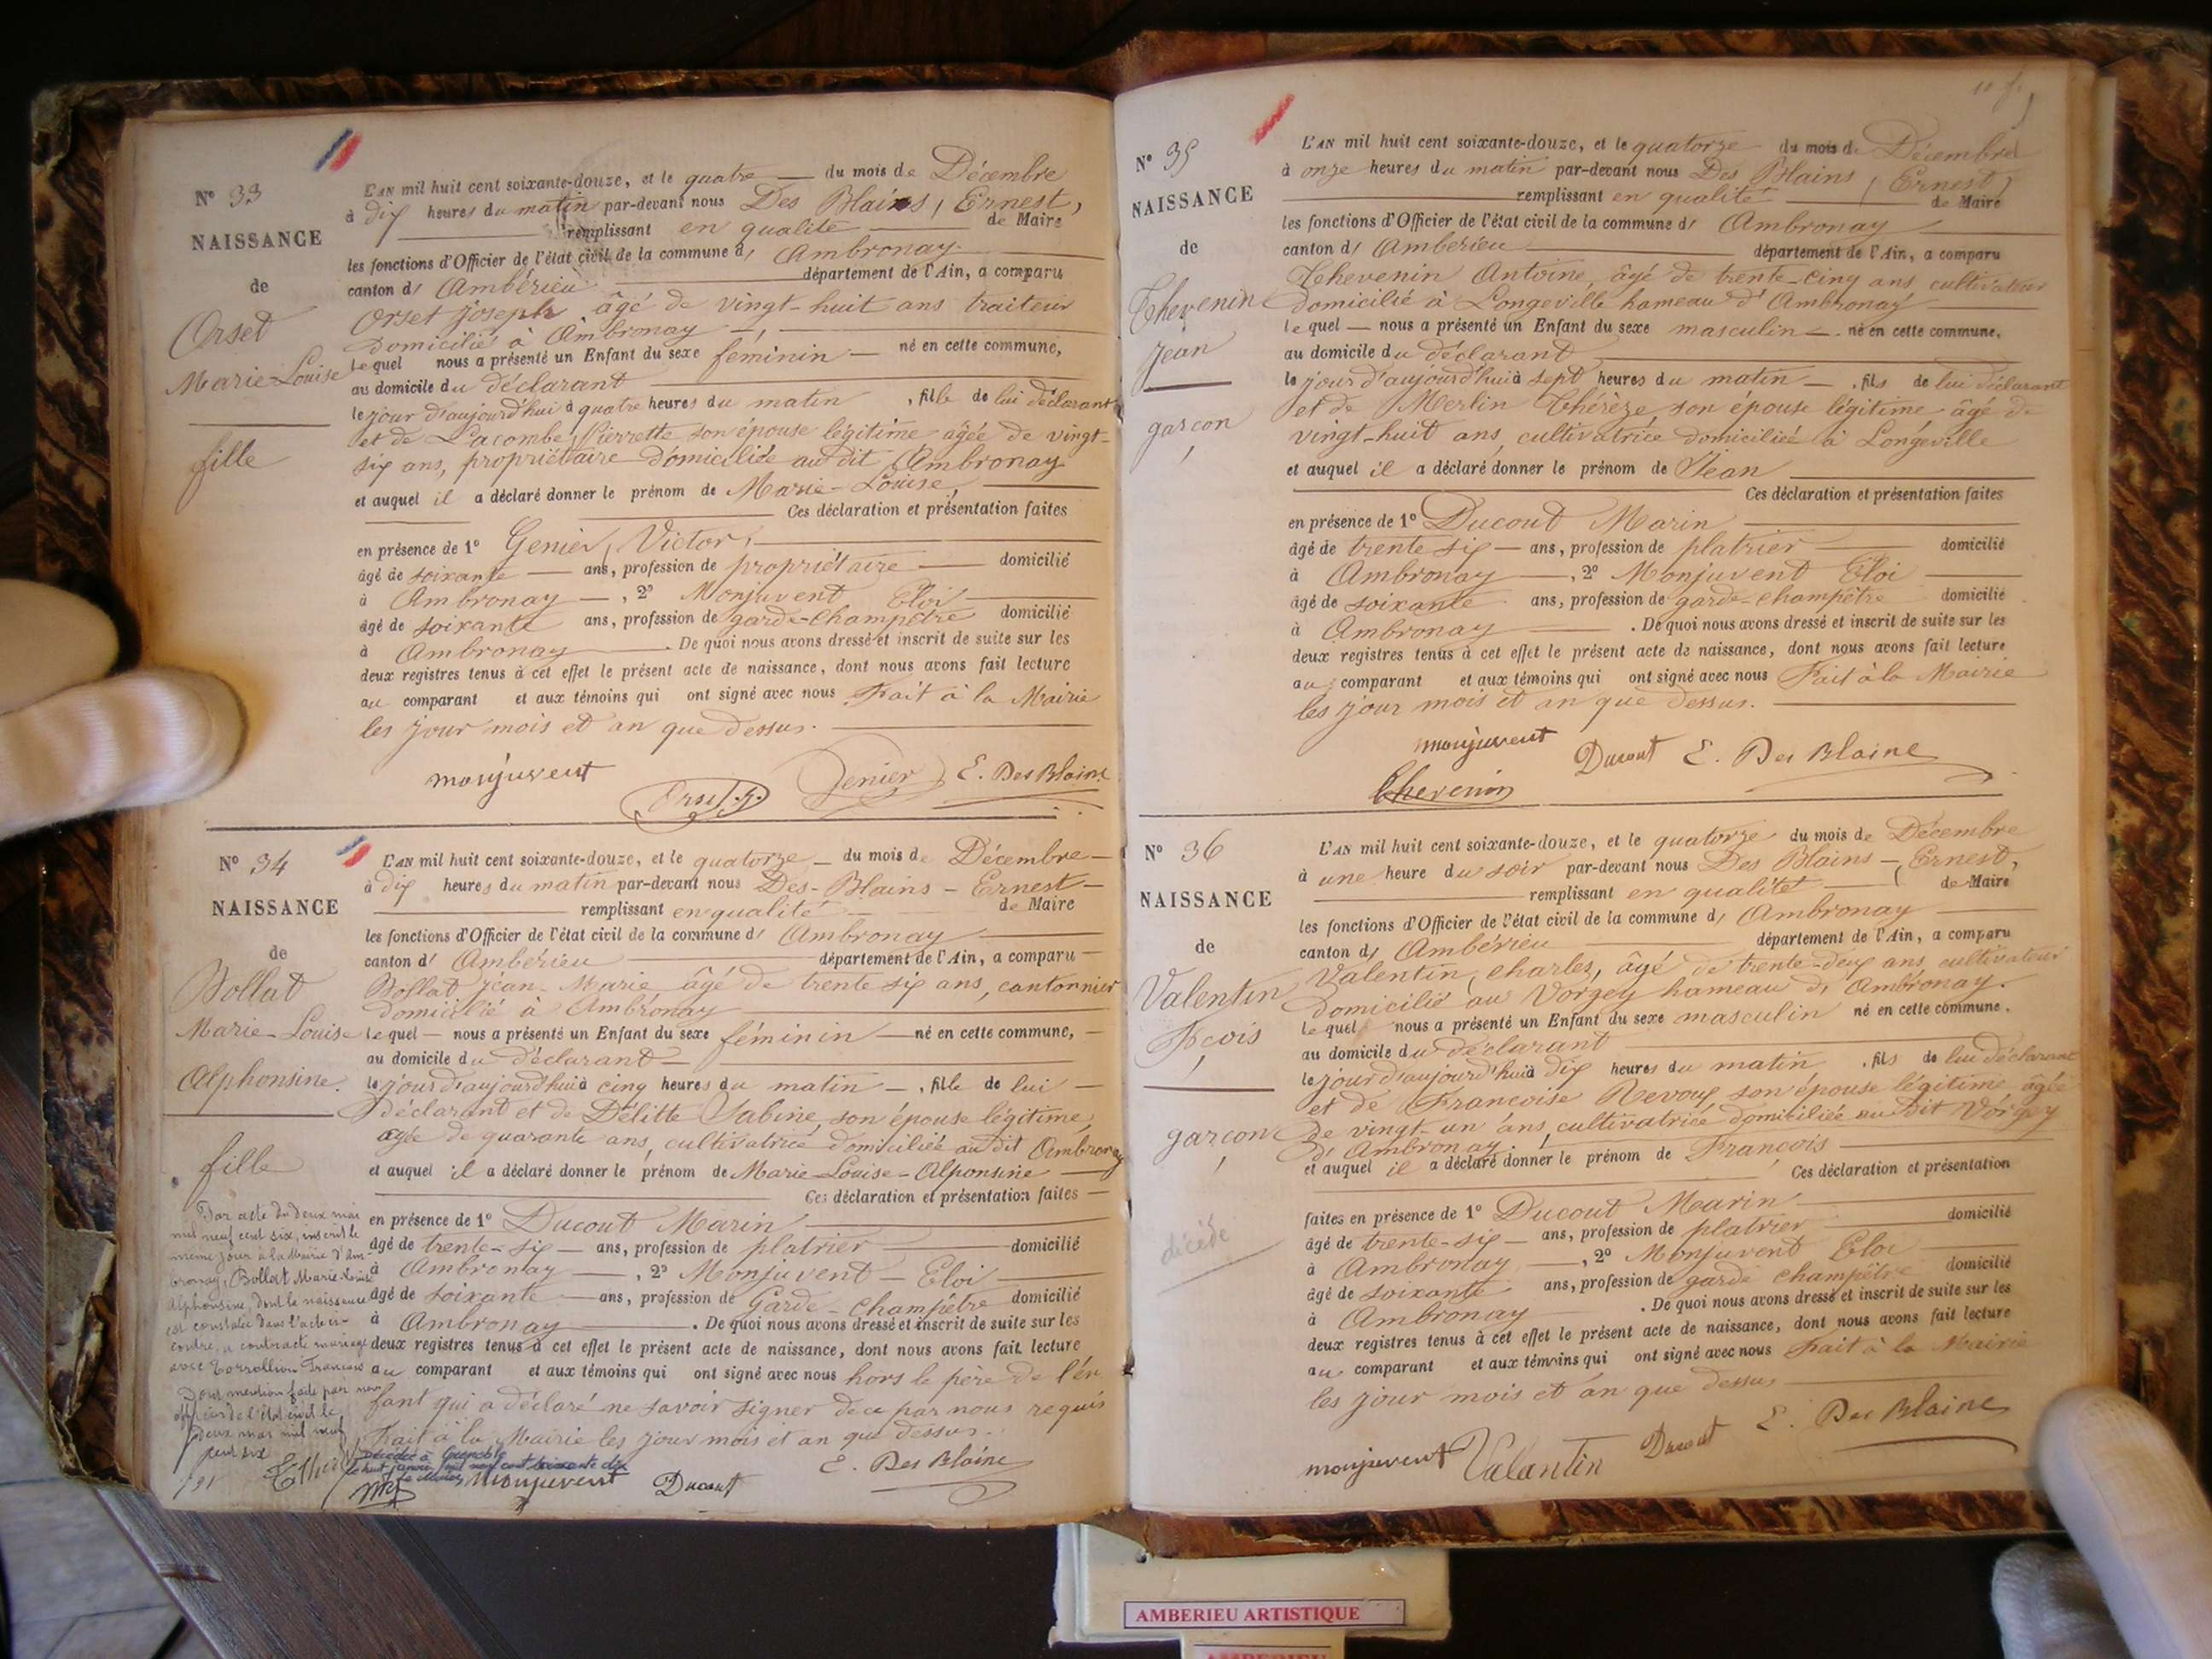 N° 33
NAISSANCE
de
Orset
Marie-Louise
fille
L'AN mil huit cent soixante-douze, et le quatre — du mois de Décembre
à dix heures du matin par-devant nous Des Blains, Ernest,
remplissant en qualité de Maire
les fonctions d'Officier de l'état civil de la commune d' Ambronay
canton d' Ambérieu département de l'Ain, a comparu
Orset Joseph âgé de vingt-huit ans traiteur
domicilié à Ambronay
lequel nous a présenté un Enfant du sexe féminin — né en cette commune,
au domicile du déclarant
le jour d'aujourd'hui à quatre heures du matin, fille de lui déclarant
et de Lacombe Pierrette son épouse légitime âgée de vingt-
six ans, propriétaire domiciliée au dit Ambronay
et auquel il a déclaré donner le prénom de Marie-Louise,
Ces déclaration et présentation faites
en présence de 1° Genier, Victor,
âgé de soixante — ans, profession de propriétaire — domicilié
à Ambronay —, 2° Monjuvent Eloi
âgé de soixante ans, profession de garde-champêtre domicilié
à Ambronay. De quoi nous avons dressé et inscrit de suite sur les
deux registres tenus à cet effet le présent acte de naissance, dont nous avons fait lecture
au comparant et aux témoins qui ont signé avec nous Fait à la Mairie
les jour mois et an que dessus.
monjuvent Orset J. Genier E. Des Blains
N° 34
NAISSANCE
de
Bollat
Marie-Louise
Alphonsine.
fille
L'AN mil huit cent soixante-douze, et le quatorze — du mois de Décembre —
à dix heures du matin par-devant nous Des-Blains - Ernest -
remplissant en qualité de Maire
les fonctions d'Officier de l'état civil de la commune d' Ambronay
canton d' Ambérieu département de l'Ain, a comparu
Bollat Jean-Marie âgé de trente six ans, cantonnier
domicilié à Ambronay
lequel — nous a présenté un Enfant du sexe féminin — né en cette commune,
au domicile du déclarant
le jour d'aujourd'hui à cinq heures du matin —, fille de lui
déclarant et de Délitte Sabine, son épouse légitime,
agée de quarante ans, cultivatrice domiciliée au dit Ambronay
et auquel il a déclaré donner le prénom de Marie-Louise-Alponsine
Ces déclaration et présentation faites
en présence de 1° Ducout Marin
âgé de trente-six — ans, profession de platrier domicilié
à Ambronay —, 2° Monjuvent - Eloi
âgé de soixante — ans, profession de Garde-Champêtre domicilié
à Ambronay. De quoi nous avons dressé et inscrit de suite sur les
deux registres tenus à cet effet le présent acte de naissance, dont nous avons fait lecture
au comparant et aux témoins qui ont signé avec nous hors le père de l'en
fant qui a déclaré ne savoir signer de ce par nous requis
Fait à la Mairie les jour mois et an que dessus.
E. Des Blains
Monjuvent Ducout
Par acte du deux mai
mil neuf cent six, inscrit le
même jour à la Mairie d'Am-
bronay, Bollat Marie Louise
Alphonsine, dont la naissance
est constatée dans l'acte ci-
contre, a contracté mariage
avec François
Dont mention faite par nous
officier de l'état civil le
deux mai mil neuf
cent six
Décédée à Grenoble
le huit janvier mil neuf cent soixante dix
N° 35
NAISSANCE
de
Thevenin
Jean
garçon
L'AN mil huit cent soixante-douze, et le quatorze du mois de Décembre
à onze heures du matin par-devant nous Des Blains, Ernest,
remplissant en qualité de Maire
les fonctions d'Officier de l'état civil de la commune d' Ambronay
canton d' Ambérieu département de l'Ain, a comparu
Thevenin Antoine, âgé de trente-cinq ans cultivateur
domicilié à Longeville hameau d'Ambronay
lequel — nous a présenté un Enfant du sexe masculin — né en cette commune,
au domicile du déclarant
le jour d'aujourd'hui à sept heures du matin —, fils de lui déclarant
et de Merlin Thérèze, son épouse légitime âgé de
vingt-huit ans, cultivatrice domiciliée à Longeville
et auquel il a déclaré donner le prénom de Jean
Ces déclaration et présentation faites
en présence de 1° Ducout Marin
âgé de trente six — ans, profession de platrier domicilié
à Ambronay —, 2° Monjuvent Eloi
âgé de soixante ans, profession de garde-champêtre domicilié
à Ambronay. De quoi nous avons dressé et inscrit de suite sur les
deux registres tenus à cet effet le présent acte de naissance, dont nous avons fait lecture
au comparant et aux témoins qui ont signé avec nous Fait à la Mairie
les jour mois et an que dessus.
monjuvent Ducout E. Des Blains
Thevenin
N° 36
NAISSANCE
de
Valentin
Fcois
garçon
décédé
L'AN mil huit cent soixante-douze, et le quatorze du mois de Décembre
à une heure du soir par-devant nous Des Blains —, Ernest,
remplissant en qualité de Maire
les fonctions d'Officier de l'état civil de la commune d' Ambronay
canton d' Ambérieu département de l'Ain, a comparu
Valentin, Charles, âgé de trente-deux ans, cultivateur
domicilié au Vorgey hameau d' Ambronay.
lequel nous a présenté un Enfant du sexe masculin né en cette commune,
au domicile du déclarant
le jour d'aujourd'hui à dix heures du matin, fils de lui déclarant
et de Françoise Revoux, son épouse légitime âgée
de vingt-un ans, cultivatrice domiciliée au dit Vorgey
d' Ambronay.
et auquel il a déclaré donner le prénom de François
Ces déclaration et présentation
faites en présence de 1° Ducout Marin
âgé de trente-six — ans, profession de platrier domicilié
à Ambronay —, 2° Monjuvent Eloi
âgé de soixante ans, profession de garde champêtre domicilié
à Ambronay. De quoi nous avons dressé et inscrit de suite sur les
deux registres tenus à cet effet le présent acte de naissance, dont nous avons fait lecture
au comparant et aux témoins qui ont signé avec nous Fait à la Mairie
les jour mois et an que dessus
monjuvent Valantin Ducout E. Des Blains
AMBERIEU ARTISTIQUE
AMBERIEU